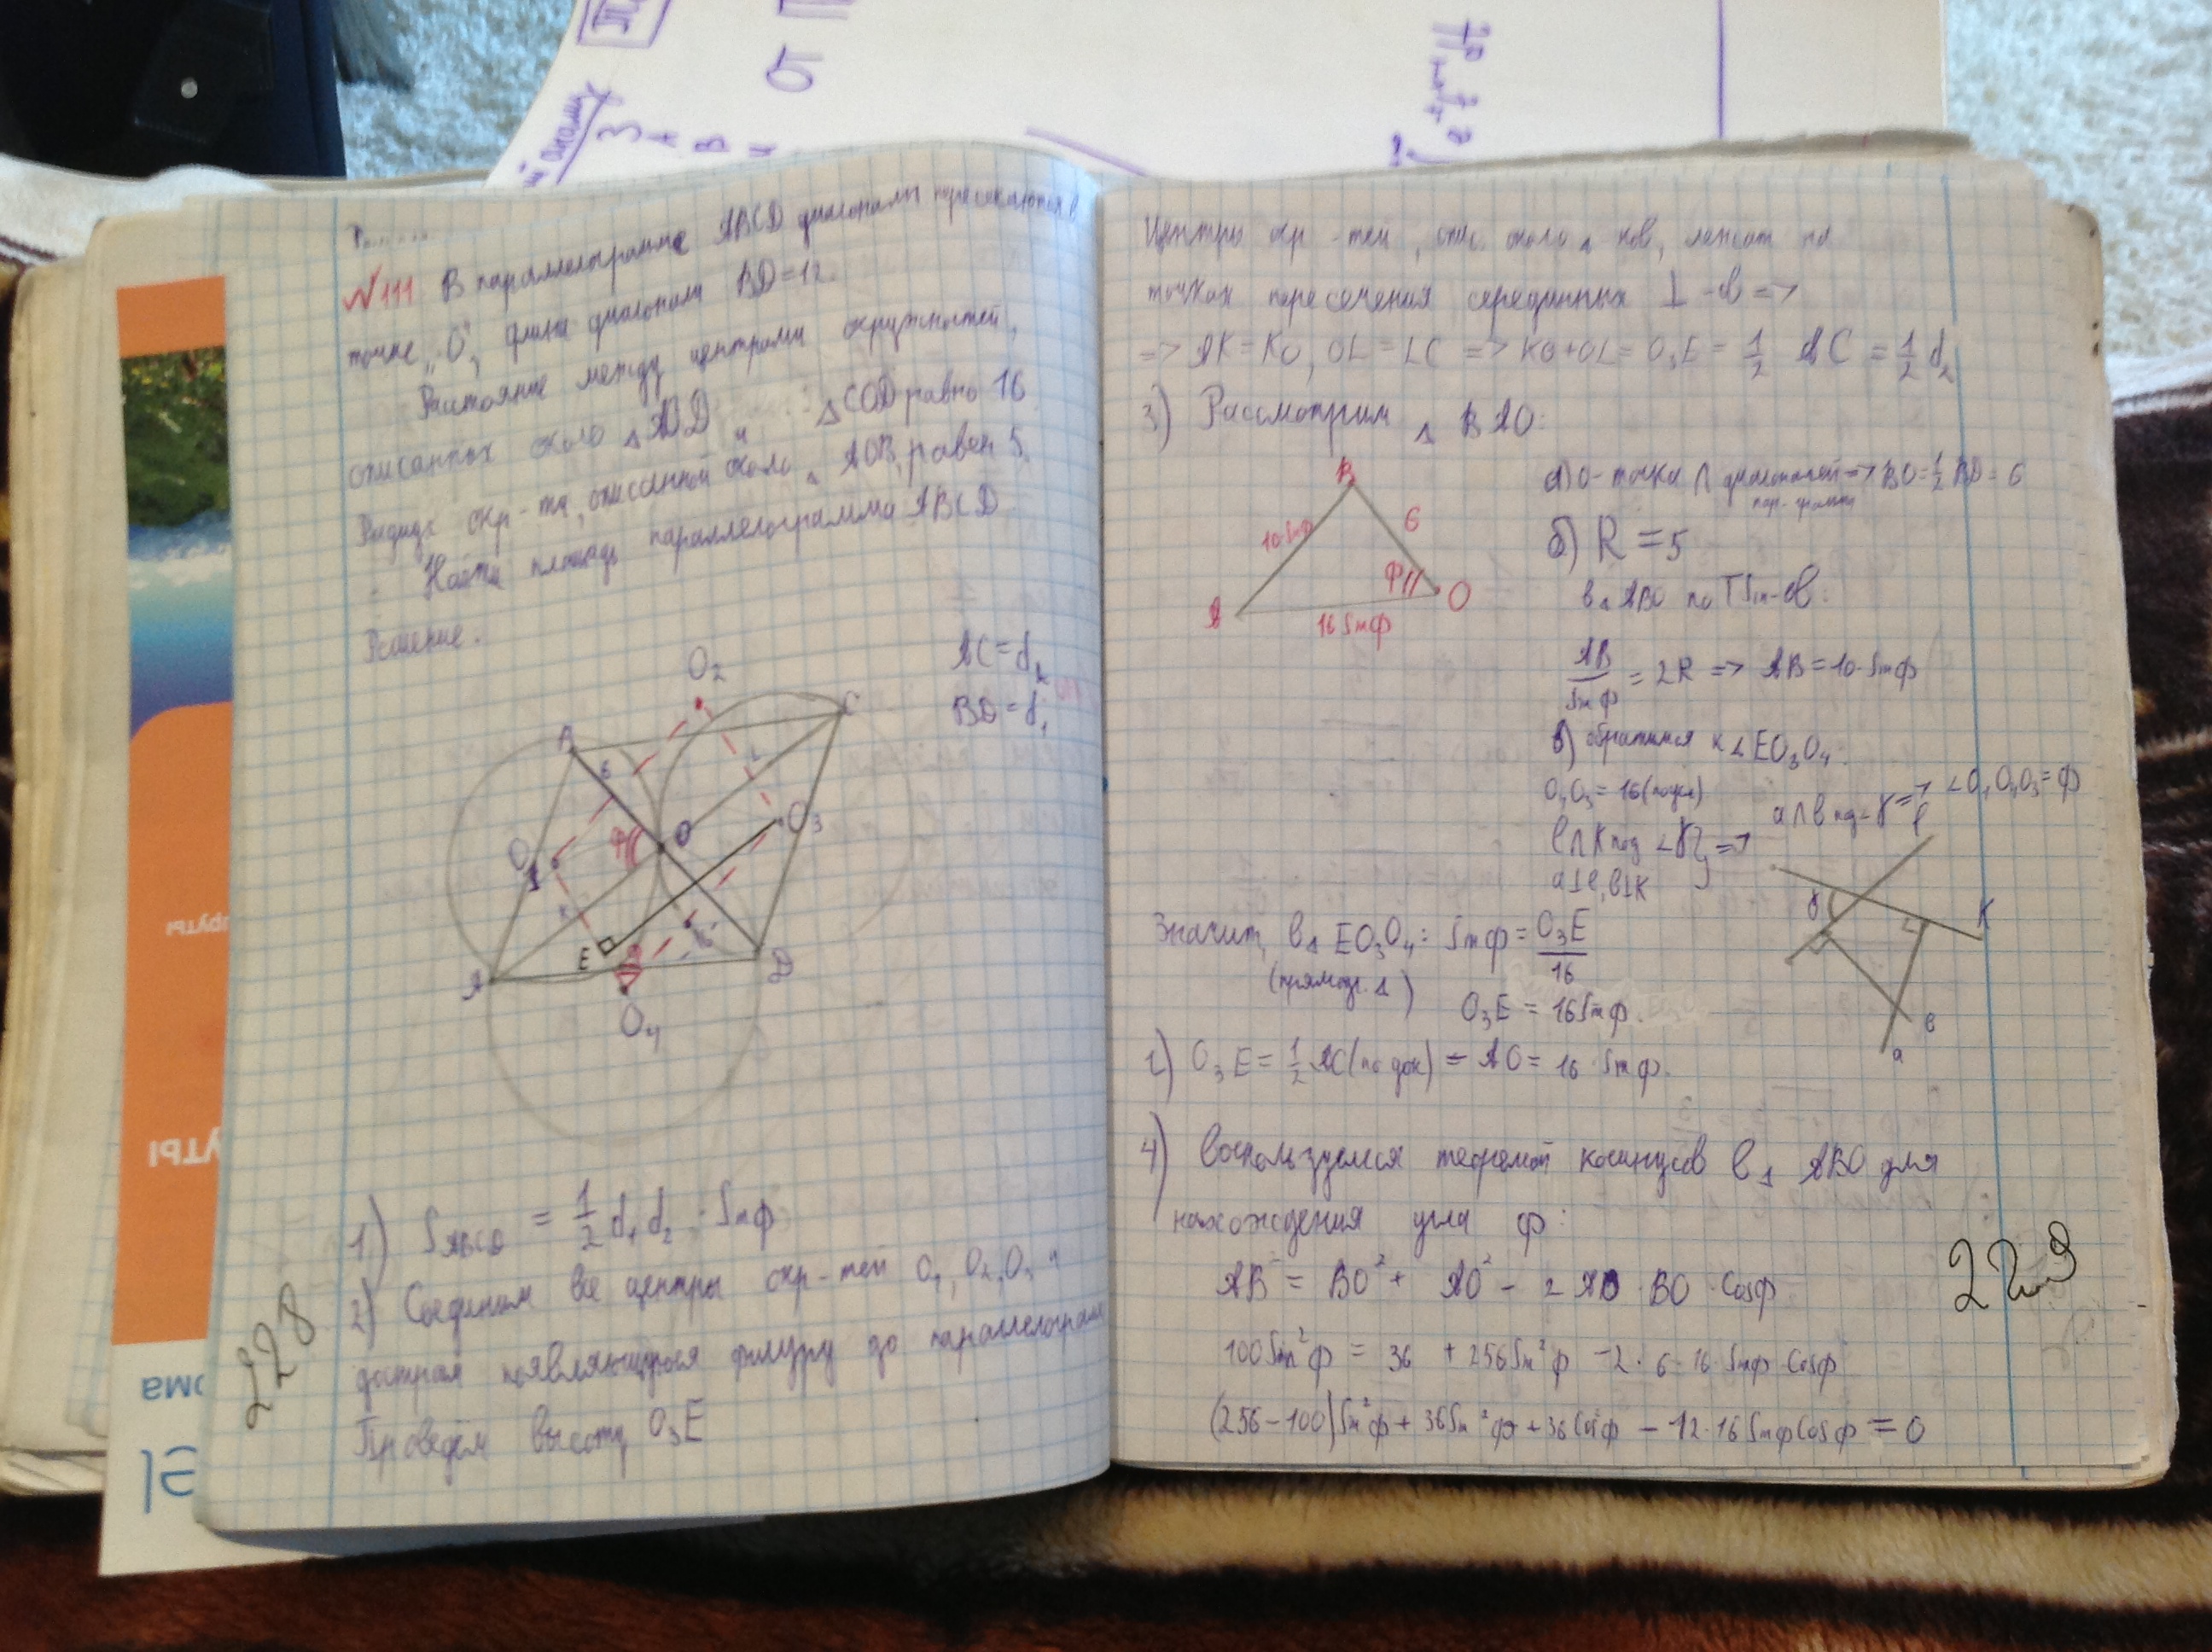 №111 В параллелограмме ABCD диагонали пересекаются в
точке „O", длина диагонали BD=12.
Расстояние между центрами окружностей,
описанных около △AOD и △COD равно 16.
Радиус окр-ти, описанной около △AOB, равен 5.
Найти площадь параллелограмма ABCD.
Решение:
AC=d₂
BD=d₁
O₂
B
C
6
L
O₁
φ
O
O₃
K
E
A
D
O₄
1) S_ABCD = 1/2 d₁ d₂ · Sinφ
2) Соединим все центры окр-тей O₁, O₂, O₃ и
достроим появляющуюся фигуру до параллелограмма
Проведём высоту O₃E
228
Центры окр-тей, опис. около △ков, лежат на
точках пересечения серединных ⊥-ов =>
=> AK=KO, OL=LC => KO+OL=O₃E=1/2 AC=1/2 d₂
3) Рассмотрим △ BAO:
B
10·Sinφ
6
φ
O
A
16 Sinφ
а) O-точка ∩ диагоналей => BO=1/2 BD=6
пар-грамма
б) R=5
в △ ABO по T Sin-ов:
AB/Sinφ = 2R => AB=10·Sinφ
в) обратимся к △ EO₃O₄:
O₄O₃=16(по усл)
l∩K под ∠γ } =>
a⊥l, b⊥K
a∩b под γ => ∠O₁O₄O₃=φ
l
γ
K
b
a
Значит, в △ EO₃O₄: Sinφ = O₃E/16
(прямоуг. △)
O₃E = 16Sinφ.
г) O₃E = 1/2 AC(по док) = AO = 16·Sinφ.
4) Воспользуемся теоремой косинусов в △ ABO для
нахождения угла φ:
AB² = BO² + AO² - 2 AO · BO · Cosφ
100Sin²φ = 36 + 256Sin²φ - 2·6·16·Sinφ·Cosφ
(256-100)Sin²φ + 36Sin²φ + 36Cos²φ - 12·16SinφCosφ = 0
УТЫ